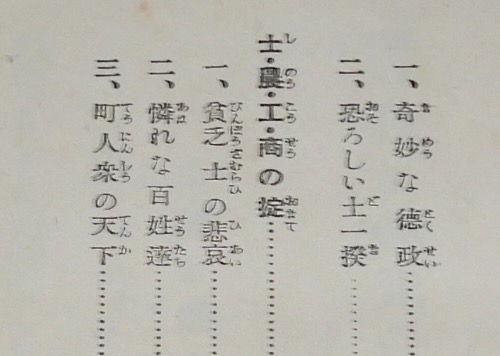 一、奇妙な德政……
二、恐ろしい土一揆……
士・農・工・商の掟……
一、貧乏士の悲哀……
二、憐れな百姓達……
三、町人衆の天下……